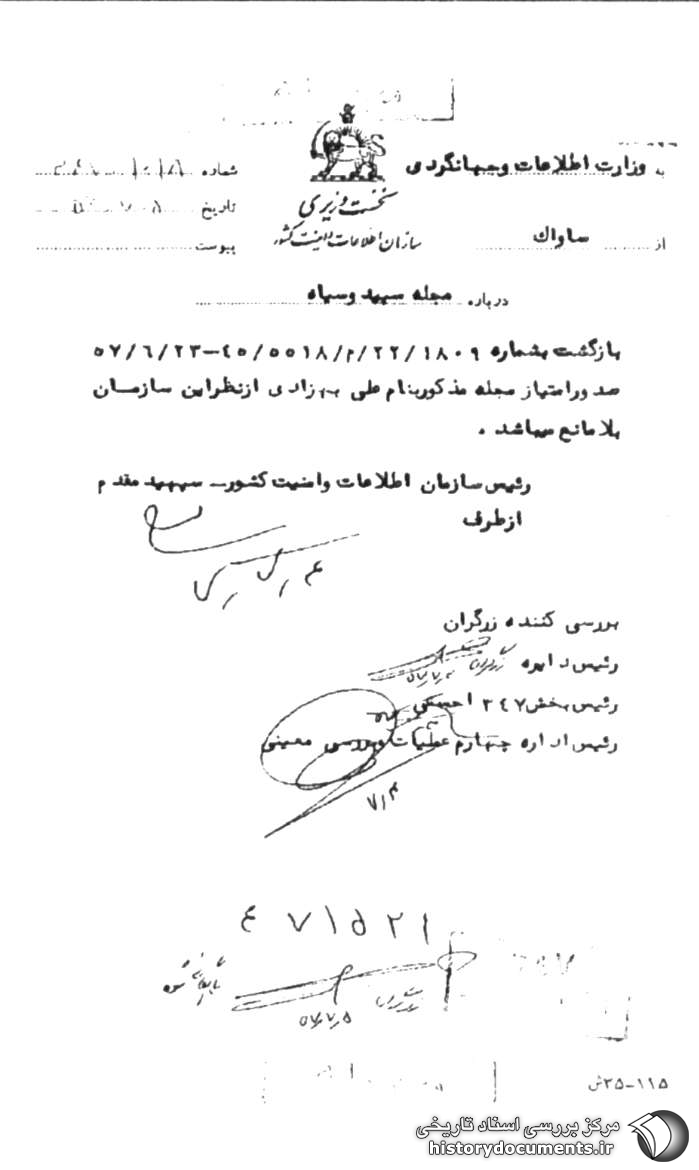 به وزارت اطلاعات وجهانگردی
نخست وزیری
سازمان اطلاعات و امنیت کشور
شماره
تاریخ
پیوست
از ساواک
درباره مجله سپید وسیاه
بازگشت بشماره ۱۸۰۹/۲۲/م/۵۵۱۸/٤۵-۵۷/٦/۲۳
صدورامتیاز مجله مذکوربنام علی بهزادی ازنظراین سازمان
بلامانع میباشد .
رئیس سازمان اطلاعات وامنیت کشور- سپهبد مقدم
ازطرف
بررسی کننده زرگران
رئیس دایره
رئیس بخش ۳٤۷
رئیس اداره چهارم عملیات وبررسی معینی
۷٫۴
٤۷۱۵۲۱
بایگانی شود
۵۷٫۷٫۵
۱۱۵-۲۵ش
مرکز بررسی اسناد تاریخی
historydocuments.ir